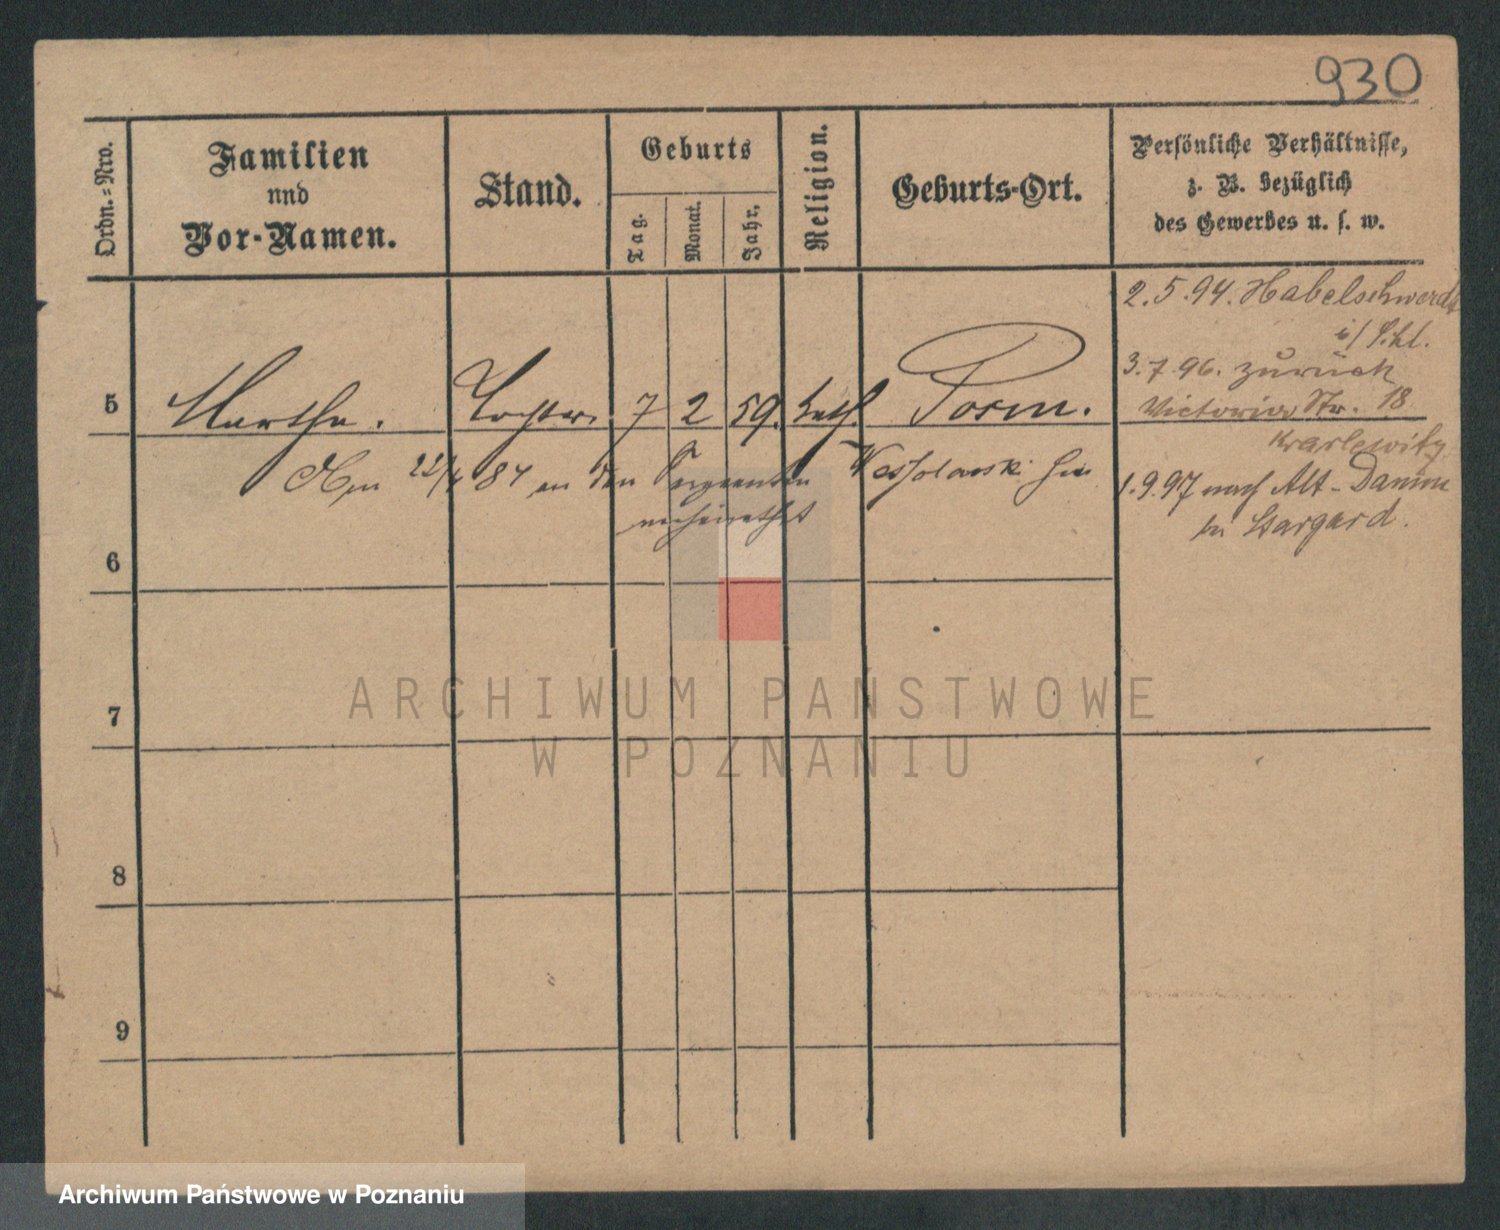 930
Ordn.=Nro.
Familien
und
Vor-Namen.
Stand.
Geburts
Tag.
Monat.
Jahr.
Religion.
Geburts-Ort.
Persönliche Verhältnisse,
z. B. bezüglich
des Gewerbes u. s. w.
2.5.94. Habelschwerdt
i/ Schl.
3.7.96. zurück
Victoria Str. 18
5 Martha. Tochter. 7 2 59. kath. Posen.
Am 22/4 84 an den Sergeanten hier
verheirathet
1.9.97 nach Alt-Damm
bei Stargard.
6
7
8
9
ARCHIWUM PAŃSTWOWE
W POZNANIU
Archiwum Państwowe w Poznaniu